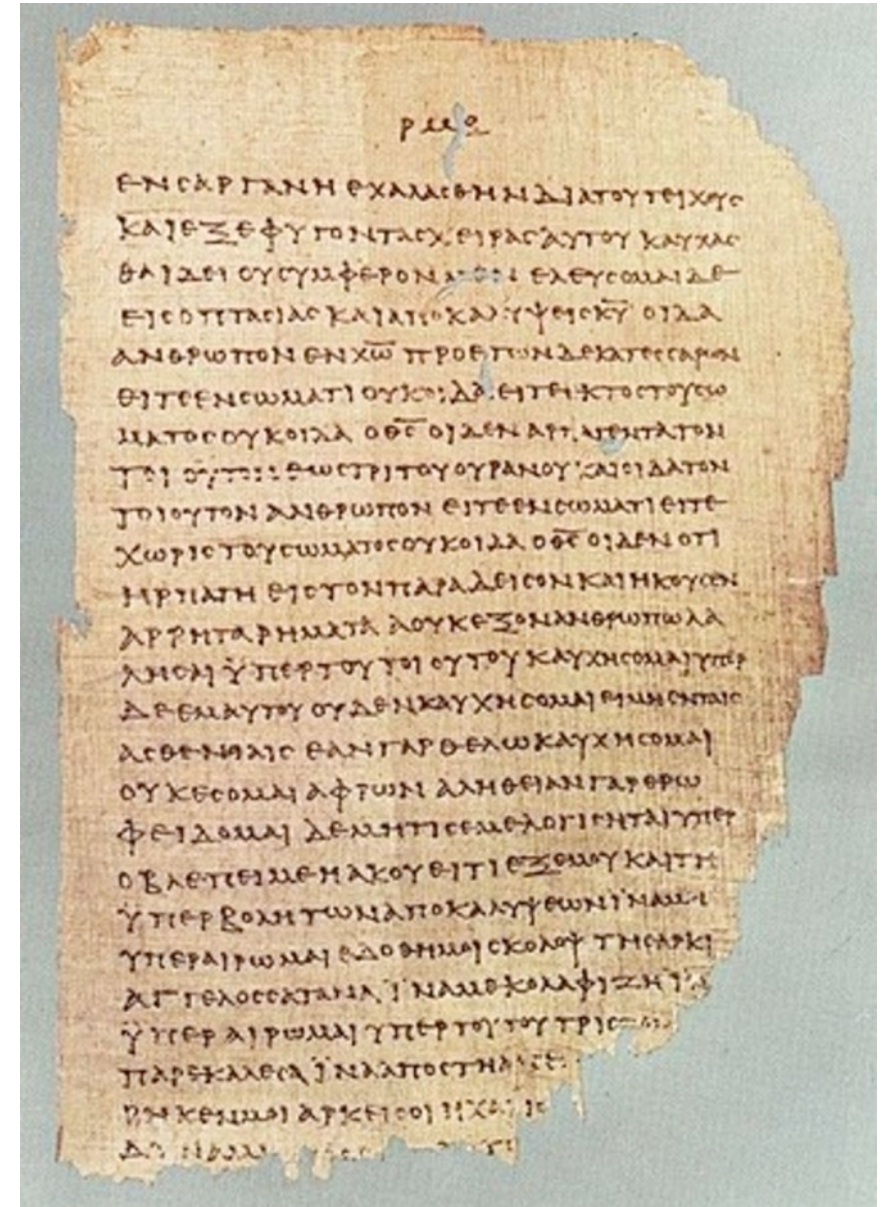 ρμθ
ΕΝ ϹΑΡΓΑΝΗ ΕΧΑΛΑϹΘΗΝ ΔΙΑ ΤΟΥ ΤΕΙΧΟΥϹ
ΚΑΙ ΕΞΕΦΥΓΟΝ ΤΑϹ ΧΕΙΡΑϹ ΑΥΤΟΥ ΚΑΥΧΑϹ
ΘΑΙ ΔΕΙ ΟΥ ϹΥΜΦΕΡΟΝ ΜΕΝ ΕΛΕΥϹΟΜΑΙ ΔΕ
ΕΙϹ ΟΠΤΑϹΙΑϹ ΚΑΙ ΑΠΟΚΑΛΥΨΕΙϹ Κ̅Υ̅ ΟΙΔΑ
ΑΝΘΡΩΠΟΝ ΕΝ Χ̅Ω̅ ΠΡΟ ΕΤΩΝ ΔΕΚΑΤΕϹϹΑΡΩΝ
ΕΙΤΕ ΕΝ ϹΩΜΑΤΙ ΟΥΚ ΟΙΔΑ ΕΙΤΕ ΕΚΤΟϹ ΤΟΥ ϹΩ
ΜΑΤΟϹ ΟΥΚ ΟΙΔΑ Ο Θ̅Ϲ̅ ΟΙΔΕΝ ΑΡΠΑΓΕΝΤΑ ΤΟΝ
ΤΟΙΟΥΤΟΝ ΕΩϹ ΤΡΙΤΟΥ ΟΥΡΑΝΟΥ ΚΑΙ ΟΙΔΑ ΤΟΝ
ΤΟΙΟΥΤΟΝ ΑΝΘΡΩΠΟΝ ΕΙΤΕ ΕΝ ϹΩΜΑΤΙ ΕΙΤΕ
ΧΩΡΙϹ ΤΟΥ ϹΩΜΑΤΟϹ ΟΥΚ ΟΙΔΑ Ο Θ̅Ϲ̅ ΟΙΔΕΝ ΟΤΙ
ΗΡΠΑΓΗ ΕΙϹ ΤΟΝ ΠΑΡΑΔΕΙϹΟΝ ΚΑΙ ΗΚΟΥϹΕΝ
ΑΡΡΗΤΑ ΡΗΜΑΤΑ Α ΟΥΚ ΕΞΟΝ ΑΝΘΡΩΠΩ ΛΑ
ΛΗϹΑΙ ΫΠΕΡ ΤΟΥ ΤΟΙΟΥΤΟΥ ΚΑΥΧΗϹΟΜΑΙ ΥΠΕΡ
ΔΕ ΕΜΑΥΤΟΥ ΟΥΔΕΝ ΚΑΥΧΗϹΟΜΑΙ ΕΙ ΜΗ ΕΝ ΤΑΙϹ
ΑϹΘΕΝΕΙΑΙϹ ΕΑΝ ΓΑΡ ΘΕΛΩ ΚΑΥΧΗϹΟΜΑΙ
ΟΥΚ ΕϹΟΜΑΙ ΑΦΡΩΝ ΑΛΗΘΕΙΑΝ ΓΑΡ ΕΡΩ
ΦΕΙΔΟΜΑΙ ΔΕ ΜΗ ΤΙϹ ΕΜΕ ΛΟΓΙϹΗΤΑΙ ΥΠΕΡ
Ο ΒΛΕΠΕΙ ΜΕ Η ΑΚΟΥΕΙ ΤΙ ΕΞ ΕΜΟΥ ΚΑΙ ΤΗ
ΫΠΕΡΒΟΛΗ ΤΩΝ ΑΠΟΚΑΛΥΨΕΩΝ ΪΝΑ ΜΗ
ΥΠΕΡΑΙΡΩΜΑΙ ΕΔΟΘΗ ΜΟΙ ϹΚΟΛΟΨ ΤΗ ϹΑΡΚΙ
ΑΓΓΕΛΟϹ ϹΑΤΑΝΑ ΪΝΑ ΜΕ ΚΟΛΑΦΙΖΗ ΪΝΑ
ΫΠΕΡΑΙΡΩΜΑΙ ΥΠΕΡ ΤΟΥΤΟΥ ΤΡΙϹ
ΠΑΡΕΚΑΛΕϹΑ ΪΝΑ ΑΠΟϹΤΗ
ΡΗΚΕΝ ΜΟΙ ΑΡΚΕΙ ϹΟΙ Η ΧΑΡΙϹ